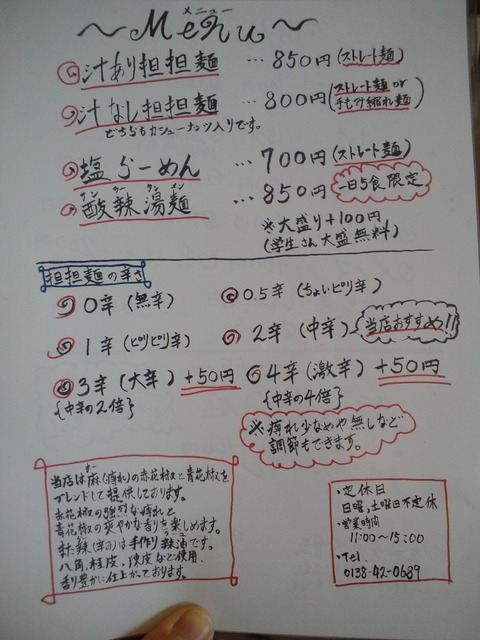 メニュー
～Menu～
汁あり担担麺 …850円(ストレート麺)
汁なし担担麺 …800円(ストレート麺or手もみ縮れ麺)
どちらもカシューナッツ入りです。
塩らーめん …700円(ストレート麺)
サン ラー タン メン
酸辣湯麺 …850円 一日5食限定
※大盛り+100円
(学生さん大盛無料)
担担麺の辛さ
0辛(無辛) 0.5辛(ちょいピリ辛)
1辛(ピリピリ辛) 2辛(中辛) 当店おすすめ!!
3辛(大辛)+50円 4辛(激辛)+50円
{中辛の2倍} {中辛の4倍}
※痺れ少なめや無しなど
調節もできます。
当店は麻(痺れ)の赤花椒と青花椒を
ブレンドして提供しております。
赤花椒の強烈な痺れと
青花椒の爽やかな香りを楽しめます。
また、辣(辛さ)は手作り辣油です。
八角、桂皮、陳皮など使用、
香り豊かに仕上がっております。
・定休日
日曜、土曜日不定休
・営業時間
11:00～15:00
・Tel
0138-42-0689